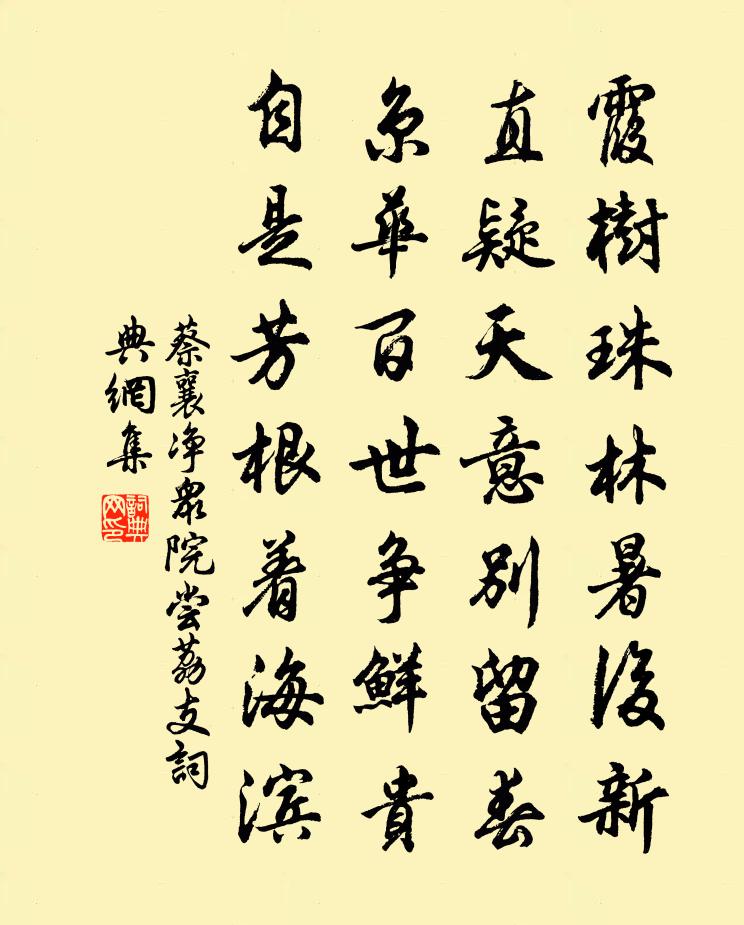 霞樹珠林暑後新
直疑天意別留春
京華百世争鮮貴
自是芳根着海滨
蔡襄净眾院尝荔支詞
典網集
詞典网印